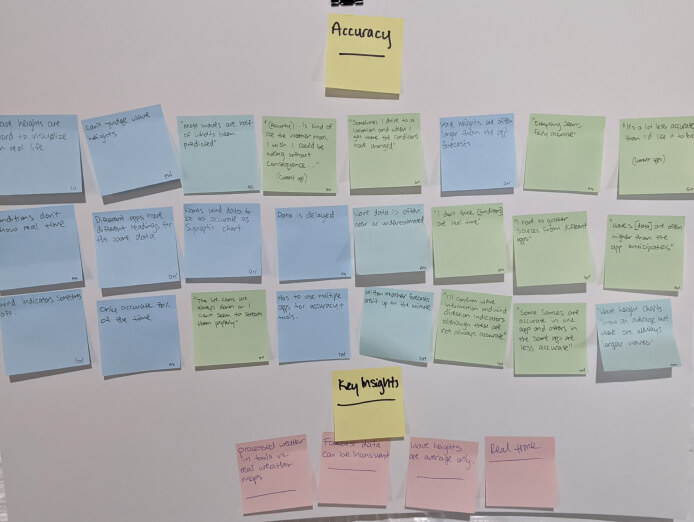 Accuracy
ave heights are
ard to visualize
n real life
Can't judge wave
heights
"Most waves are half
of what's been
predicted"
kind
of like the weather man,
I wish I could be
wrong without
consequence..."
"Sometimes I drive to a
location and when I
get there the conditions
have changed"
Wave heights are often
larger than the
forecasts
"Everything seems
fairly accurate"
"It's a lot less accurate
than I'd like it to be
nditions don't
how real time
Different apps have
different readings for
the same data
wind data to
be as accurate as
synoptic chart
Data is delayed
data is often
over or underestimated
"I don't think
are real time"
I have to gather
sources from different
apps"
"waves [data] are often
higher than the
app anticipates."
ind indicators sometimes
Only accurate 70%
of the time
"The live cams are
always down or I
can't seem to stream
them properly"
Has to use multiple
apps for accuracy +
tools.
weather forecasts
aren't up to the minute
"I'll confirm wave
information and wind
direction indicators
although these are
not always accurate"
Some sources are
accurate in one
app and others in
the same app are
less accurate"
Wave height charts
show an average but
there are always
larger waves'
Key Insights
processed weather
in tools vs
real weather
maps
Forecast data
can be inconsistent
Wave heights
are average only.
Real time